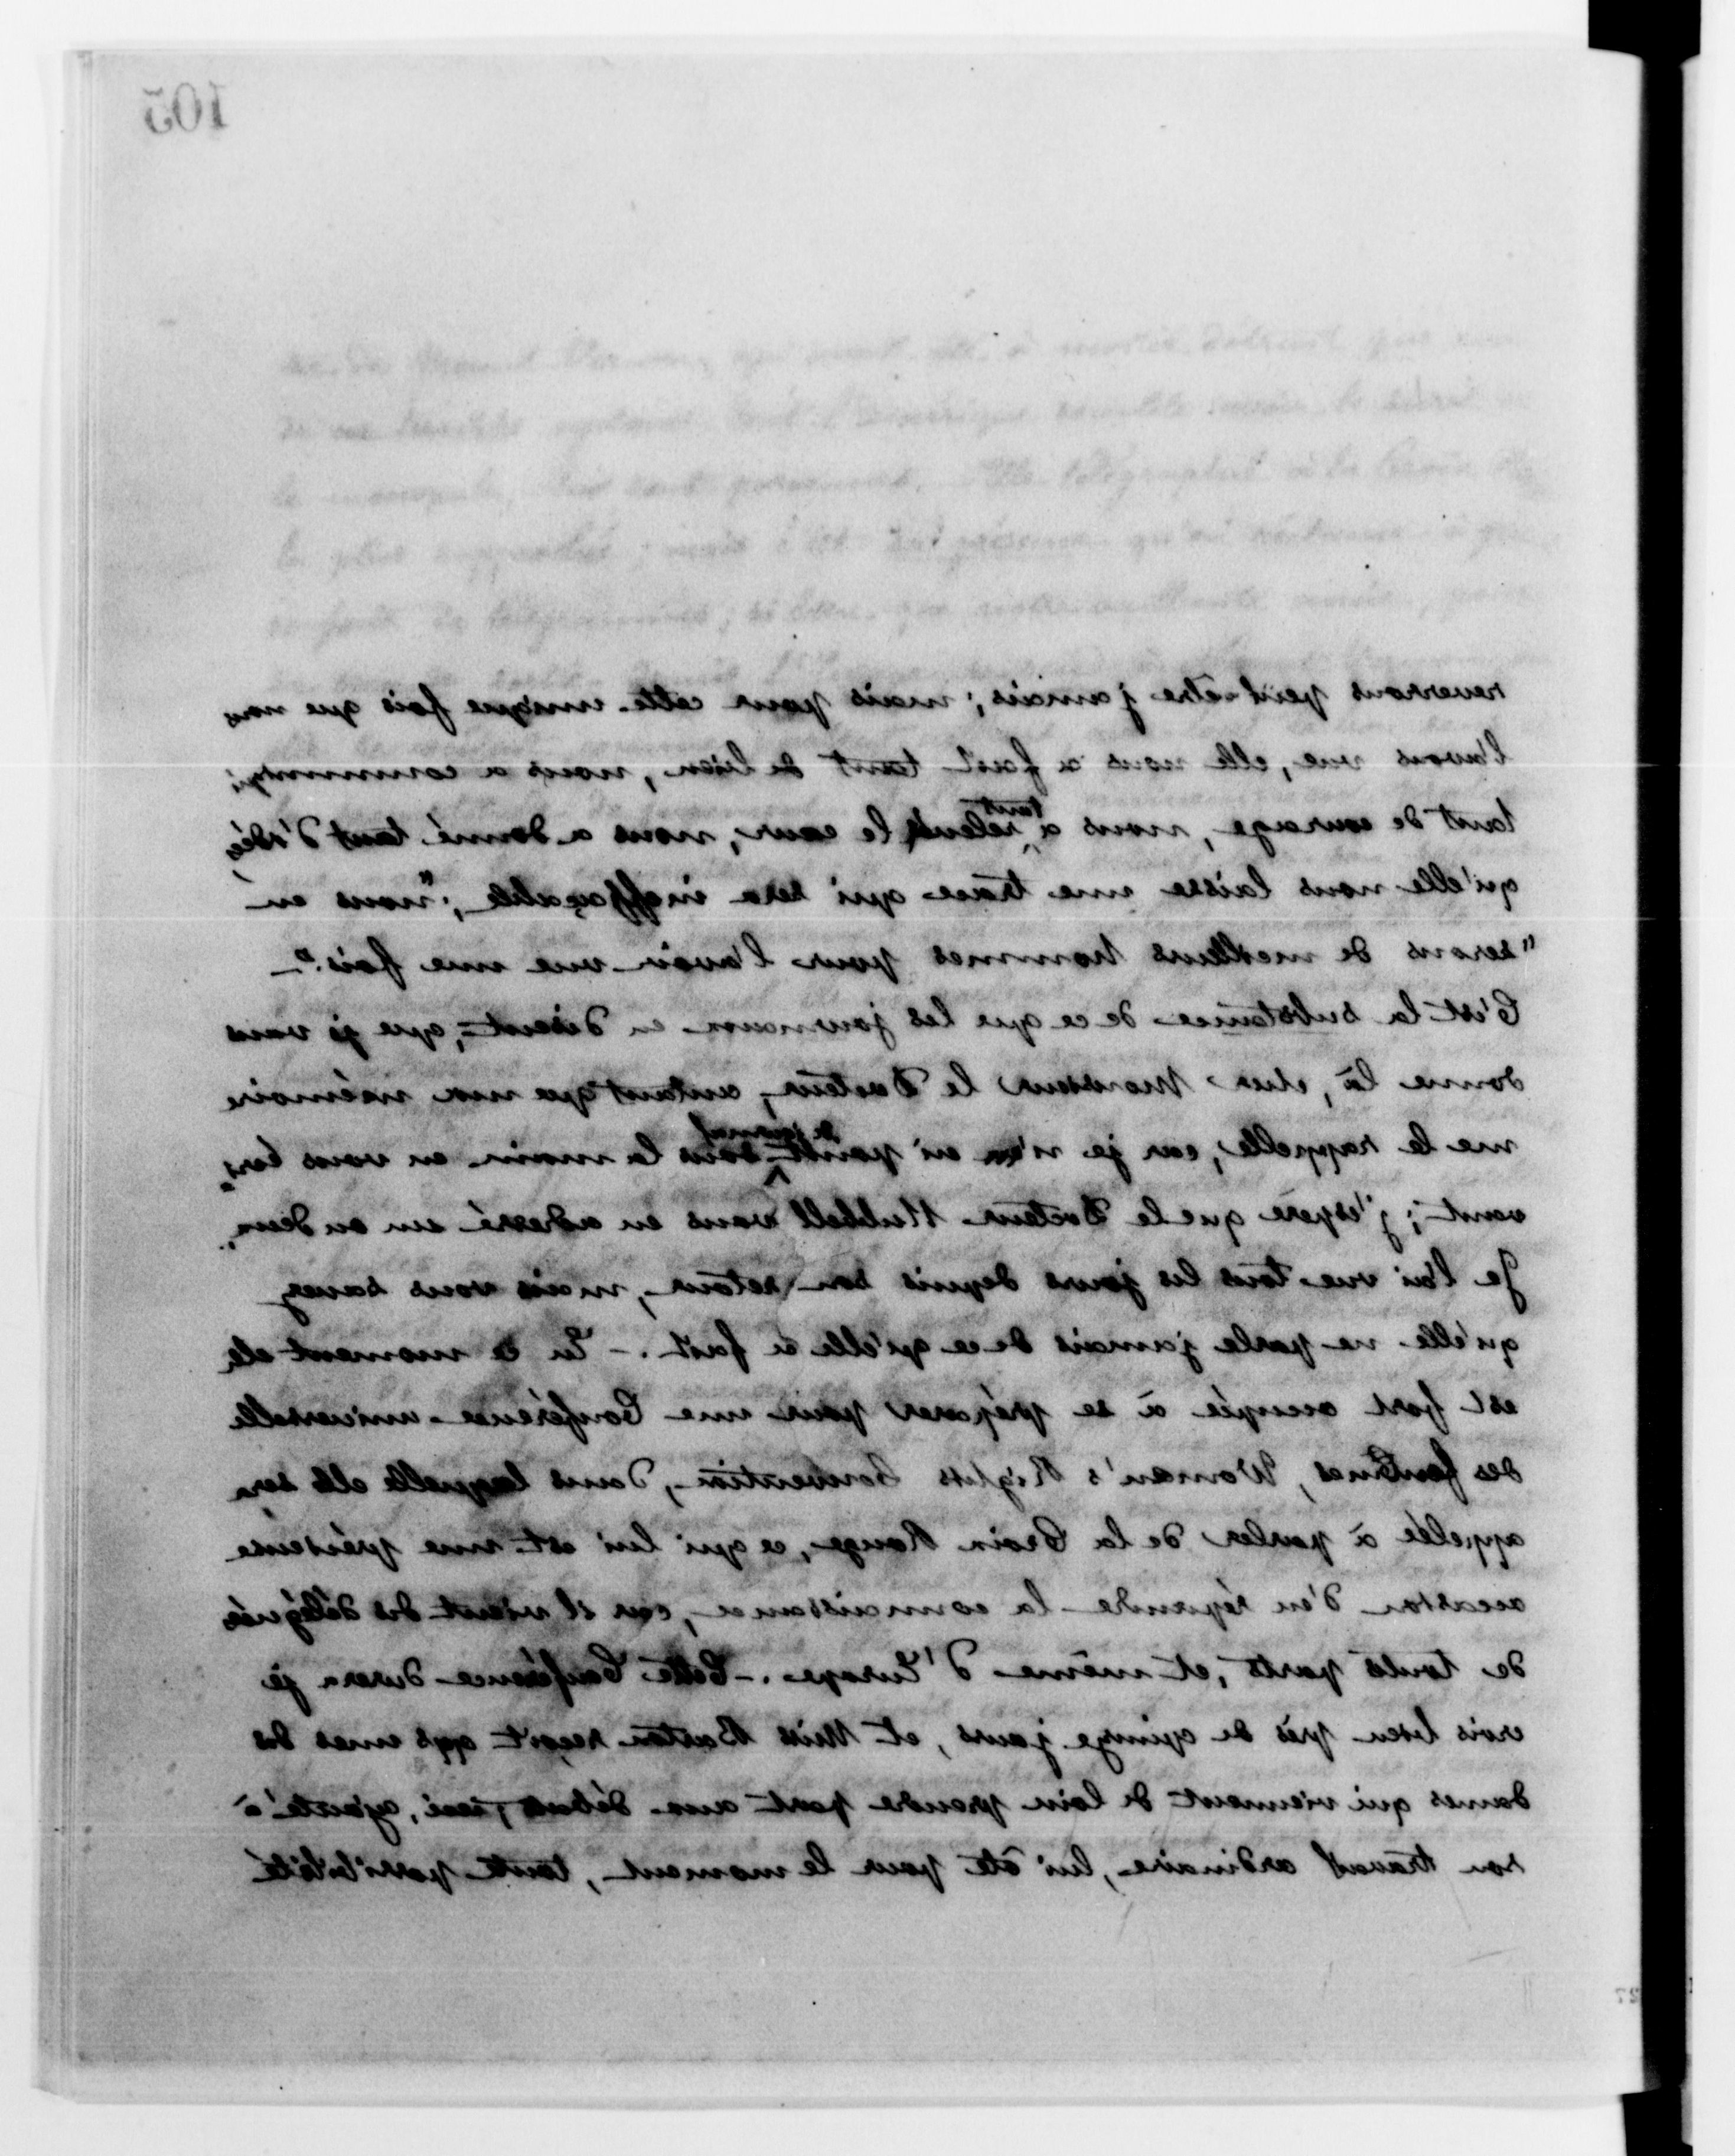 105
reverrons peut être jamais; mais pour cette unique fois que nous
l'avons vue, elle nous a fait tant de bien, nous a communiqué
tant de courage, nous a tant relevé le cœur, nous a donné tant d'idées,
qu'elle nous laisse une trace qui sera ineffaçable; "nous en
"serons de meilleurs hommes pour l'avoir vue une fois". –
C'est la substance de ce que les journaux en disent, que je vous
donne là, cher Monsieur le Docteur, autant que ma mémoire
me le rappelle, car je n'en ai point de journal sous la main en vous écri-
vant; j'espère que le Docteur Hubbell vous en adressé un ou deux.
Je l'ai vue tous les jours depuis son retour, mais vous savez
qu'elle ne parle jamais de ce qu'elle a fait. – En ce moment elle
est fort occupée à se préparer pour une Conférence universelle
des femmes, Woman's Rights Convention, dans laquelle elle sera
appelée à parler de la Croix Rouge, ce qui lui est une précieuse
occasion d'en répandre la connaissance, car il vient des délégués
de toutes parts, et même d'Europe. – Cette Conférence durera je
crois bien près de quinze jours, et Miss Barton reçoit qqs unes des
dames qui viennent de loin prendre part aux débats, ceci, ajouté à
son travail ordinaire, lui ôte pour le moment, toute possibilité